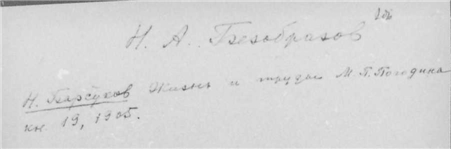 Н. А. Безобразов
Н. Барсуков Жизнь и труды М. П. Погодина
кн. 19, 1905.